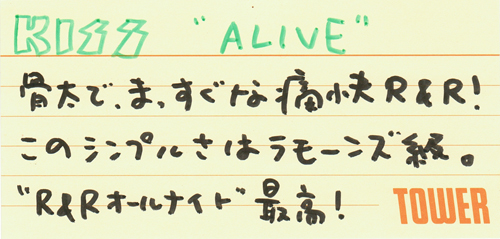 KISS "ALIVE"
骨太で、まっすぐな痛快R&R!
このシンプルさはラモーンズ級。
"R&Rオールナイト"最高!
TOWER